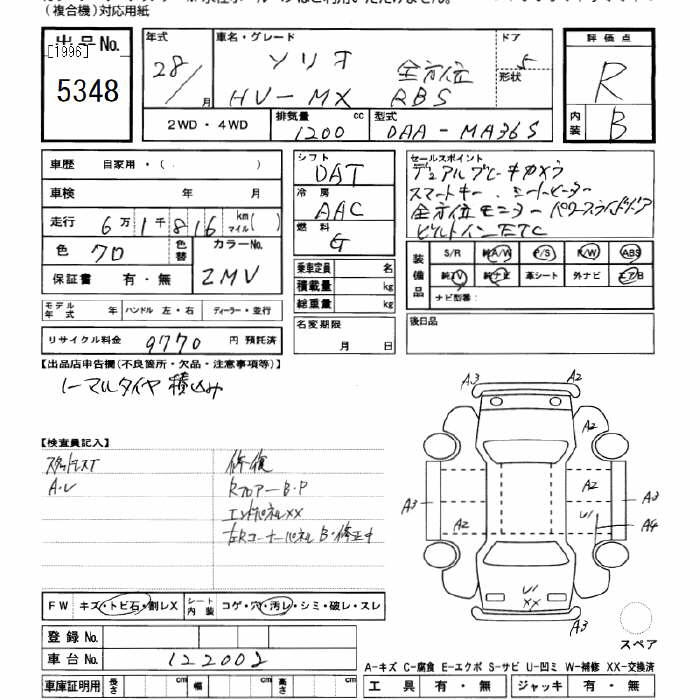 (複合機)対応用紙
出品No.
[1996]
5348
年式
28/
月
車名・グレード
ソリオ 全方位
HV-MX RBS
ドア
5
形状
評価点
R
内装
B
2WD・4WD
排気量
1200
cc
型式
DAA-MA36S
車歴 自家用・( )
車検 年 月
走行 6万 1千 816 km マイル( )
色 クロ
色替
カラーNo.
ZMV
保証書 有・無
モデル年式 年 ハンドル 左・右 ディーラー・並行
リサイクル料金 9770 円 預託済
シフト
DAT
冷房
AAC
燃料
G
乗車定員 名
積載量 kg
総重量 kg
名変期限
月 日
セールスポイント
デュアルブレーキカメラ
スマートキー、シートヒーター
全方位モニター パワースライドドア
ビルトインETC
装備品
S/R 純A/W P/S R/W ABS
純TV 純ナビ 革シート 外ナビ エアB
ナビ型番:
後日品
【出品店申告欄(不良箇所・欠品・注意事項等)】
ノーマルタイヤ積込み
【検査員記入】
スタッドレスT
A・U
修復
Rフロアー B・P
エンドパネルXX
左Rコーナーパネル B・修正中
A3 A2
A2
A3 A2 A2 A3
U1 A4
U1
XX
A3
FW キズ・トビ石・割レX
シート内装 コゲ・穴・汚レ・シミ・破レ・スレ
登録No.
車台No. 122002
車庫証明用 長さ cm 幅 cm 高さ cm
スペア
A-キズ C-腐食 E-エクボ S-サビ U-凹ミ W-補修 XX-交換済
工具 有・無 ジャッキ 有・無